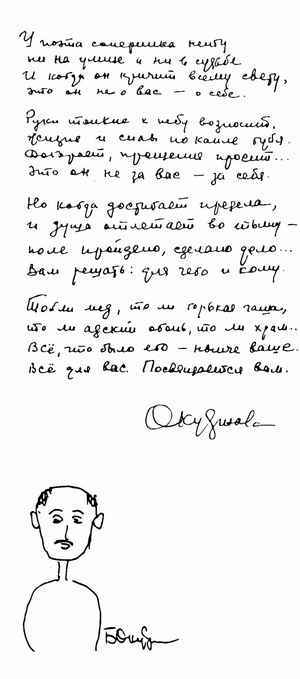 У поэта соперника нету
ни на улице и ни в судьбе
И когда он кричит всему свету,
это он не о вас – о себе.
Руки тонкие к небу возносит,
жизнь и силы по капле губя.
Догорает, прощения просит...
Это он не за вас – за себя.
Но когда достигает предела,
и душа отлетает во тьму –
поле пройдено, сделано дело...
Вам решать: для чего и кому.
То ли мед, то ли горькая чаша,
то ли адский огонь, то ли храм...
Всё, что было его – нынче ваше.
Всё для вас. Посвящается вам.
Окуджава
БОкудж